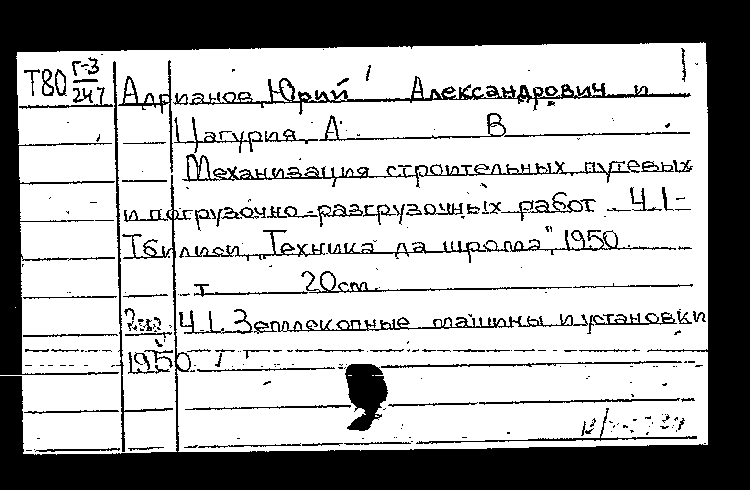 Т80 Г-3/247
Адрианов, Юрий Александрович и
Цагурия, А. В
Механизация строительных, путевых
и погрузочно-разгрузочных работ Ч.1-
Тбилиси, „Техника да шрома", 1950
т. 20cm.
Ч.1. Землекопные машины и установки
1950